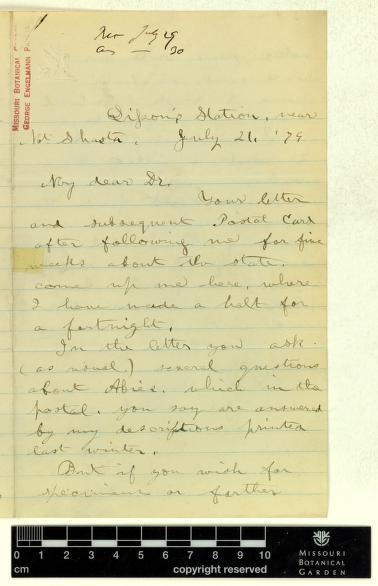 1
Rec Jy 29
as — 30
MISSOURI BOTANICAL
GEORGE ENGELMANN PAPERS
Sisson's Station, near
Mt Shasta, July 21, '79
My dear Dr.
Your letter
and subsequent Postal Card
after following me for five
weeks about the state,
come up me here, where
I have made a halt for
a fortnight.
In the letter you ask
(as usual) several questions
about Abies, which in the
postal, you say are answered
by my descriptions printed
last winter.
But if you wish for
specimens or farther
0 1 2 3 4 5 6 7 8 9 10
cm
copyright reserved
MISSOURI
BOTANICAL
GARDEN